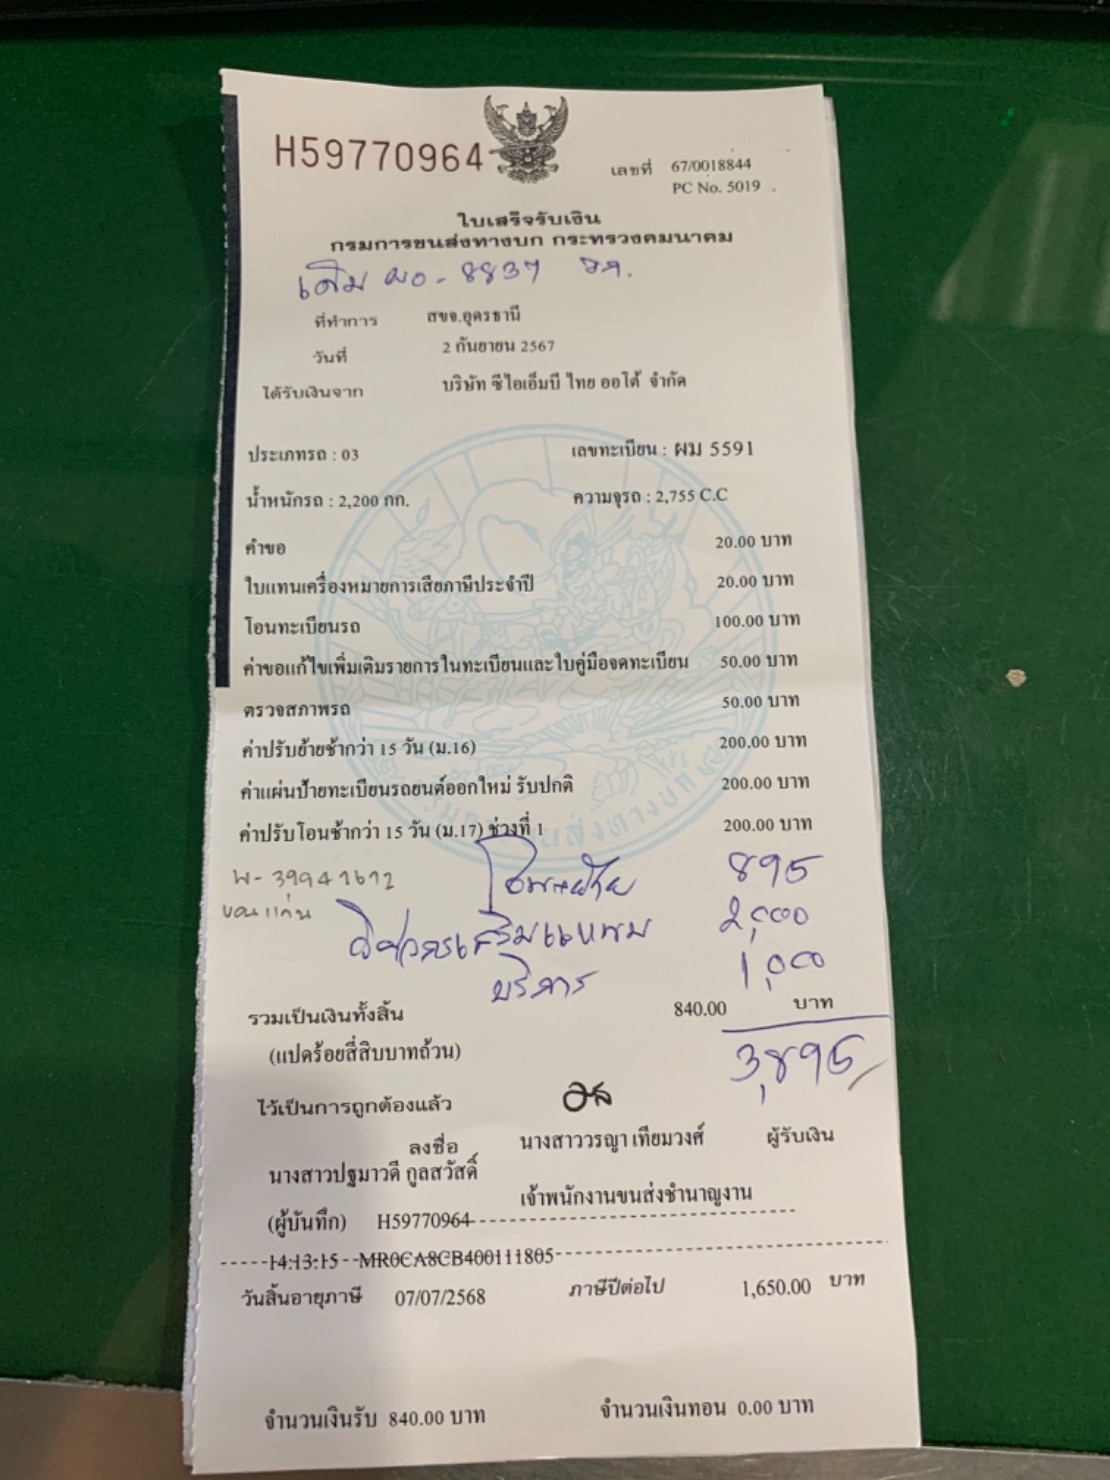 H59770964
เลขที่ 67/0018844
PC No. 5019
ใบเสร็จรับเงิน
กรมการขนส่งทางบก กระทรวงคมนาคม
เดิม ผอ-8837
ที่ทำการ สขจ.อุดรธานี
วันที่ 2 กันยายน 2567
ได้รับเงินจาก บริษัท ซีไอเอ็มบี ไทย ออโต้ จำกัด
ประเภทรถ : 03 เลขทะเบียน : ผม 5591
น้ำหนักรถ : 2,200 กก. ความจุรถ : 2,755 C.C
คำขอ 20.00 บาท
ใบแทนเครื่องหมายการเสียภาษีประจำปี 20.00 บาท
โอนทะเบียนรถ 100.00 บาท
ค่าขอแก้ไขเพิ่มเติมรายการในทะเบียนและใบคู่มือจดทะเบียน 50.00 บาท
ตรวจสภาพรถ 50.00 บาท
ค่าปรับย้ายช้ากว่า 15 วัน (ม.16) 200.00 บาท
ค่าแผ่นป้ายทะเบียนรถยนต์ออกใหม่ รับปกติ 200.00 บาท
ค่าปรับโอนช้ากว่า 15 วัน (ม.17) ช่วงที่ 1 200.00 บาท
895
W-39941612
ขอนแก่น
เสริมแหนบ 2,000
บริการ 1,000
รวมเป็นเงินทั้งสิ้น 840.00 บาท
(แปดร้อยสี่สิบบาทถ้วน) 3,895
ไว้เป็นการถูกต้องแล้ว
ลงชื่อ นางสาววรญา เทียมวงศ์ ผู้รับเงิน
นางสาวปฐมาวดี กูลสวัสดิ์
เจ้าพนักงานขนส่งชำนาญงาน
(ผู้บันทึก) H59770964
14:13:15 --MR0CA8CB400111805
วันสิ้นอายุภาษี 07/07/2568 ภาษีปีต่อไป 1,650.00 บาท
จำนวนเงินรับ 840.00 บาท จำนวนเงินทอน 0.00 บาท